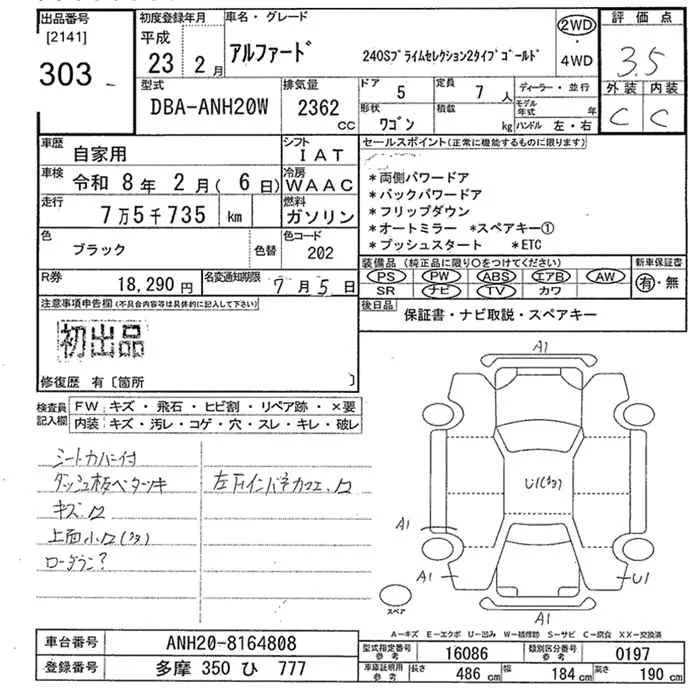 出品番号
[2141]
303
初度登録年月
平成
23 2月
車名・グレード
アルファード
240Sプライムセレクション2タイプゴールド
2WD
・
4WD
評価点
3.5
外装 内装
C C
型式
DBA-ANH20W
排気量
2362
CC
ドア
5
定員
7人
形状
ワゴン
積載
kg
ディーラー・並行
モデル年式 年
ハンドル 左・右
車歴
自家用
シフト
IAT
車検
令和 8年 2月( 6日)
冷房
WAAC
走行
7万5千735 km
燃料
ガソリン
色
ブラック
色替
色コード
202
R券
18,290円
名変通知期限
7月5日
セールスポイント(正常に機能するものに限ります)
*両側パワードア
*バックパワードア
*フリップダウン
*オートミラー *スペアキー①
*プッシュスタート *ETC
装備品(純正品に限り○をつけてください)
PS PW ABS エアB AW
SR ナビ TV カワ
新車保証書
有・無
後日品
保証書・ナビ取説・スペアキー
注意事項申告欄(不具合内容等は具体的に記入して下さい)
初出品
修復歴 有[箇所 ]
検査員記入欄
FW キズ・飛石・ヒビ割・リペア跡・×要
内装 キズ・汚レ・コゲ・穴・スレ・キレ・破レ
シートカバー付
ダッシュ板ベタツキ
キズ
上面小
左下インパネカフェ
A1
U1
A1
A1
U1
A1
スペア
A-キズ E-エクボ U-凹み W-補修跡 S-サビ C-腐食 XX-交換済
車台番号
ANH20-8164808
登録番号
多摩 350 ひ 777
型式指定番号
参考
16086
類別区分番号
参考
0197
車庫証明用
参考
長さ
486 cm
幅
184 cm
高さ
190 cm